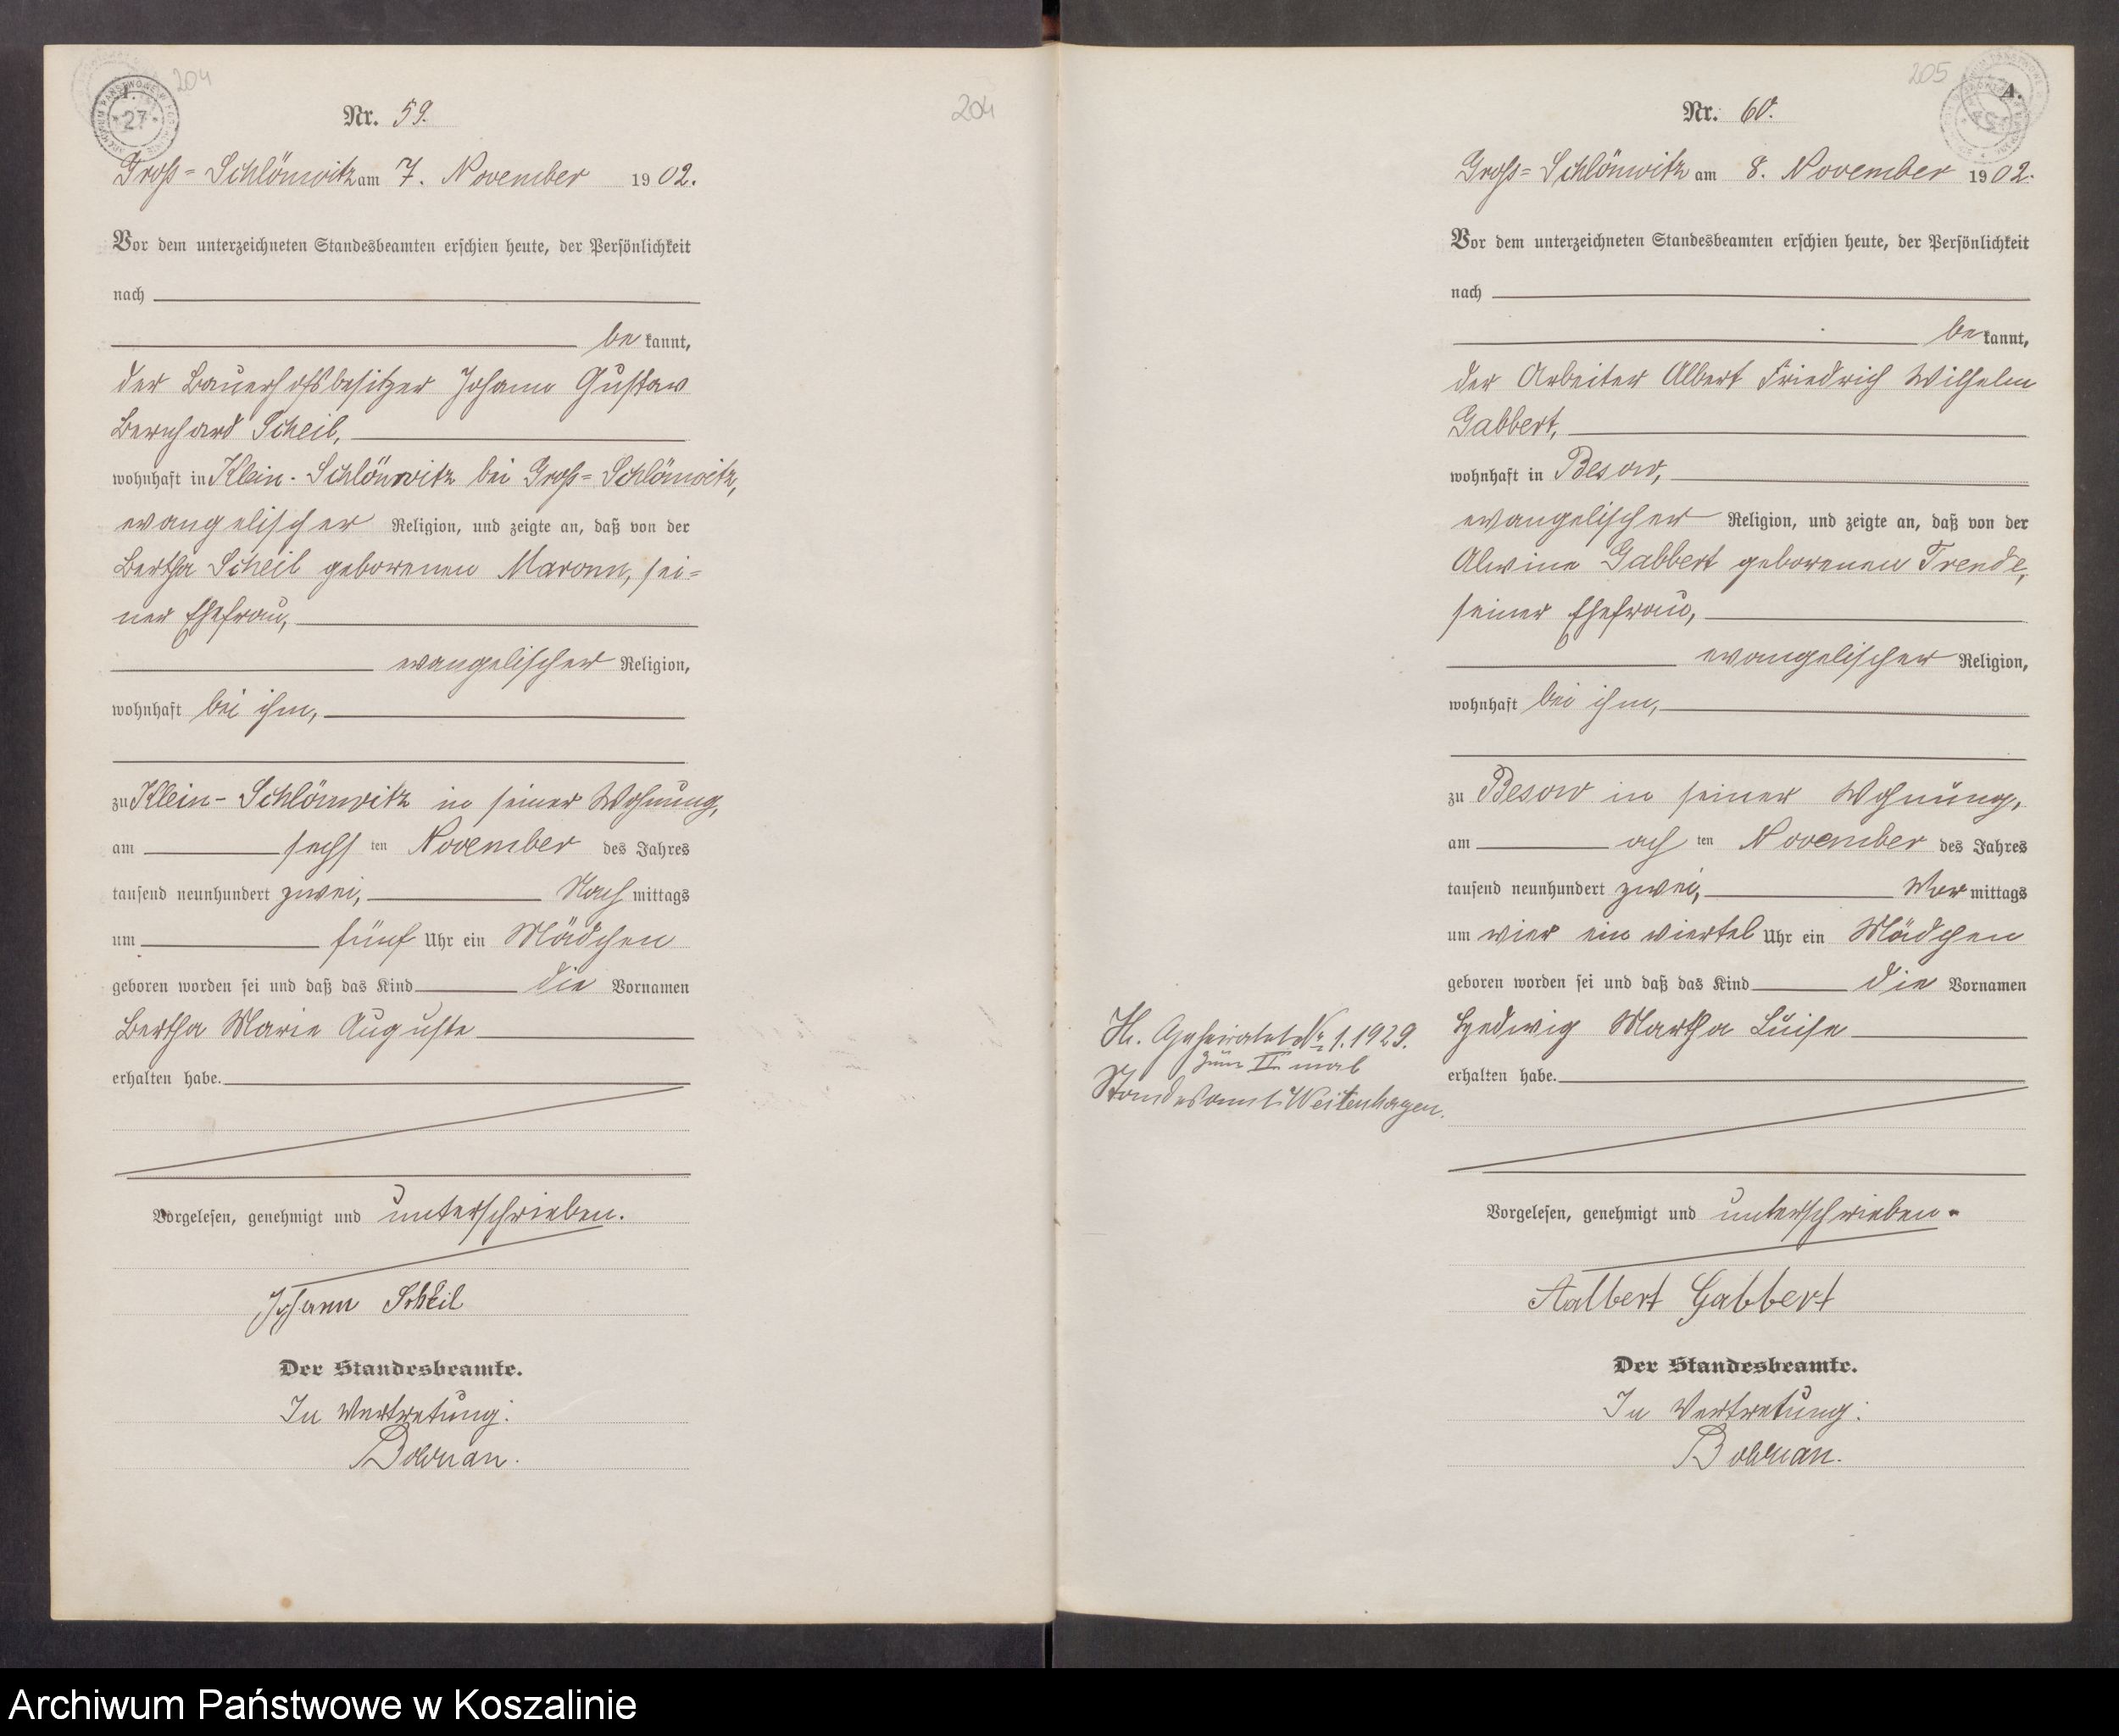 204
27
Nr. 59.
204
Groß=Schlönwitz am 7. November 1902.
Vor dem unterzeichneten Standesbeamten erschien heute, der Persönlichkeit
nach
bekannt,
der Bauerhofsbesitzer Johann Gustav
Bernhard Scheil,
wohnhaft in Klein-Schlönwitz bei Groß=Schlönwitz,
evangelischer Religion, und zeigte an, daß von der
Bertha Scheil geborenen Maronn, sei=
ner Ehefrau,
evangelischer Religion,
wohnhaft bei ihm,
zu Klein-Schlönwitz in seiner Wohnung,
am sechsten November des Jahres
tausend neunhundert zwei, Nachmittags
um fünf Uhr ein Mädchen
geboren worden sei und daß das Kind die Vornamen
Bertha Marie Auguste
erhalten habe.
Vorgelesen, genehmigt und unterschrieben.
Johann Scheil
Der Standesbeamte.
In Vertretung:
205
A.
Nr. 60.
Groß=Schlönwitz am 8. November 1902.
Vor dem unterzeichneten Standesbeamten erschien heute, der Persönlichkeit
nach
bekannt,
der Arbeiter Albert Friedrich Wilhelm
Gabbert,
wohnhaft in Besow,
evangelischer Religion, und zeigte an, daß von der
Alwine Gabbert geborenen Trende,
seiner Ehefrau,
evangelischer Religion,
wohnhaft bei ihm,
zu Besow in seiner Wohnung,
am achten November des Jahres
tausend neunhundert zwei, Vormittags
um vier ein viertel Uhr ein Mädchen
geboren worden sei und daß das Kind die Vornamen
Hedwig Martha Luise
erhalten habe.
H. Geheiratet Nr. 1. 1929.
zum II mal
Standesamt Weitenhagen.
Vorgelesen, genehmigt und unterschrieben.
Aalbert Gabbert
Der Standesbeamte.
In Vertretung:
Archiwum Państwowe w Koszalinie